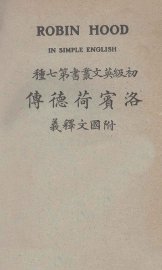 ROBIN HOOD
IN SIMPLE ENGLISH
初級英文叢書第七種
洛賓荷德傳
附國文釋義